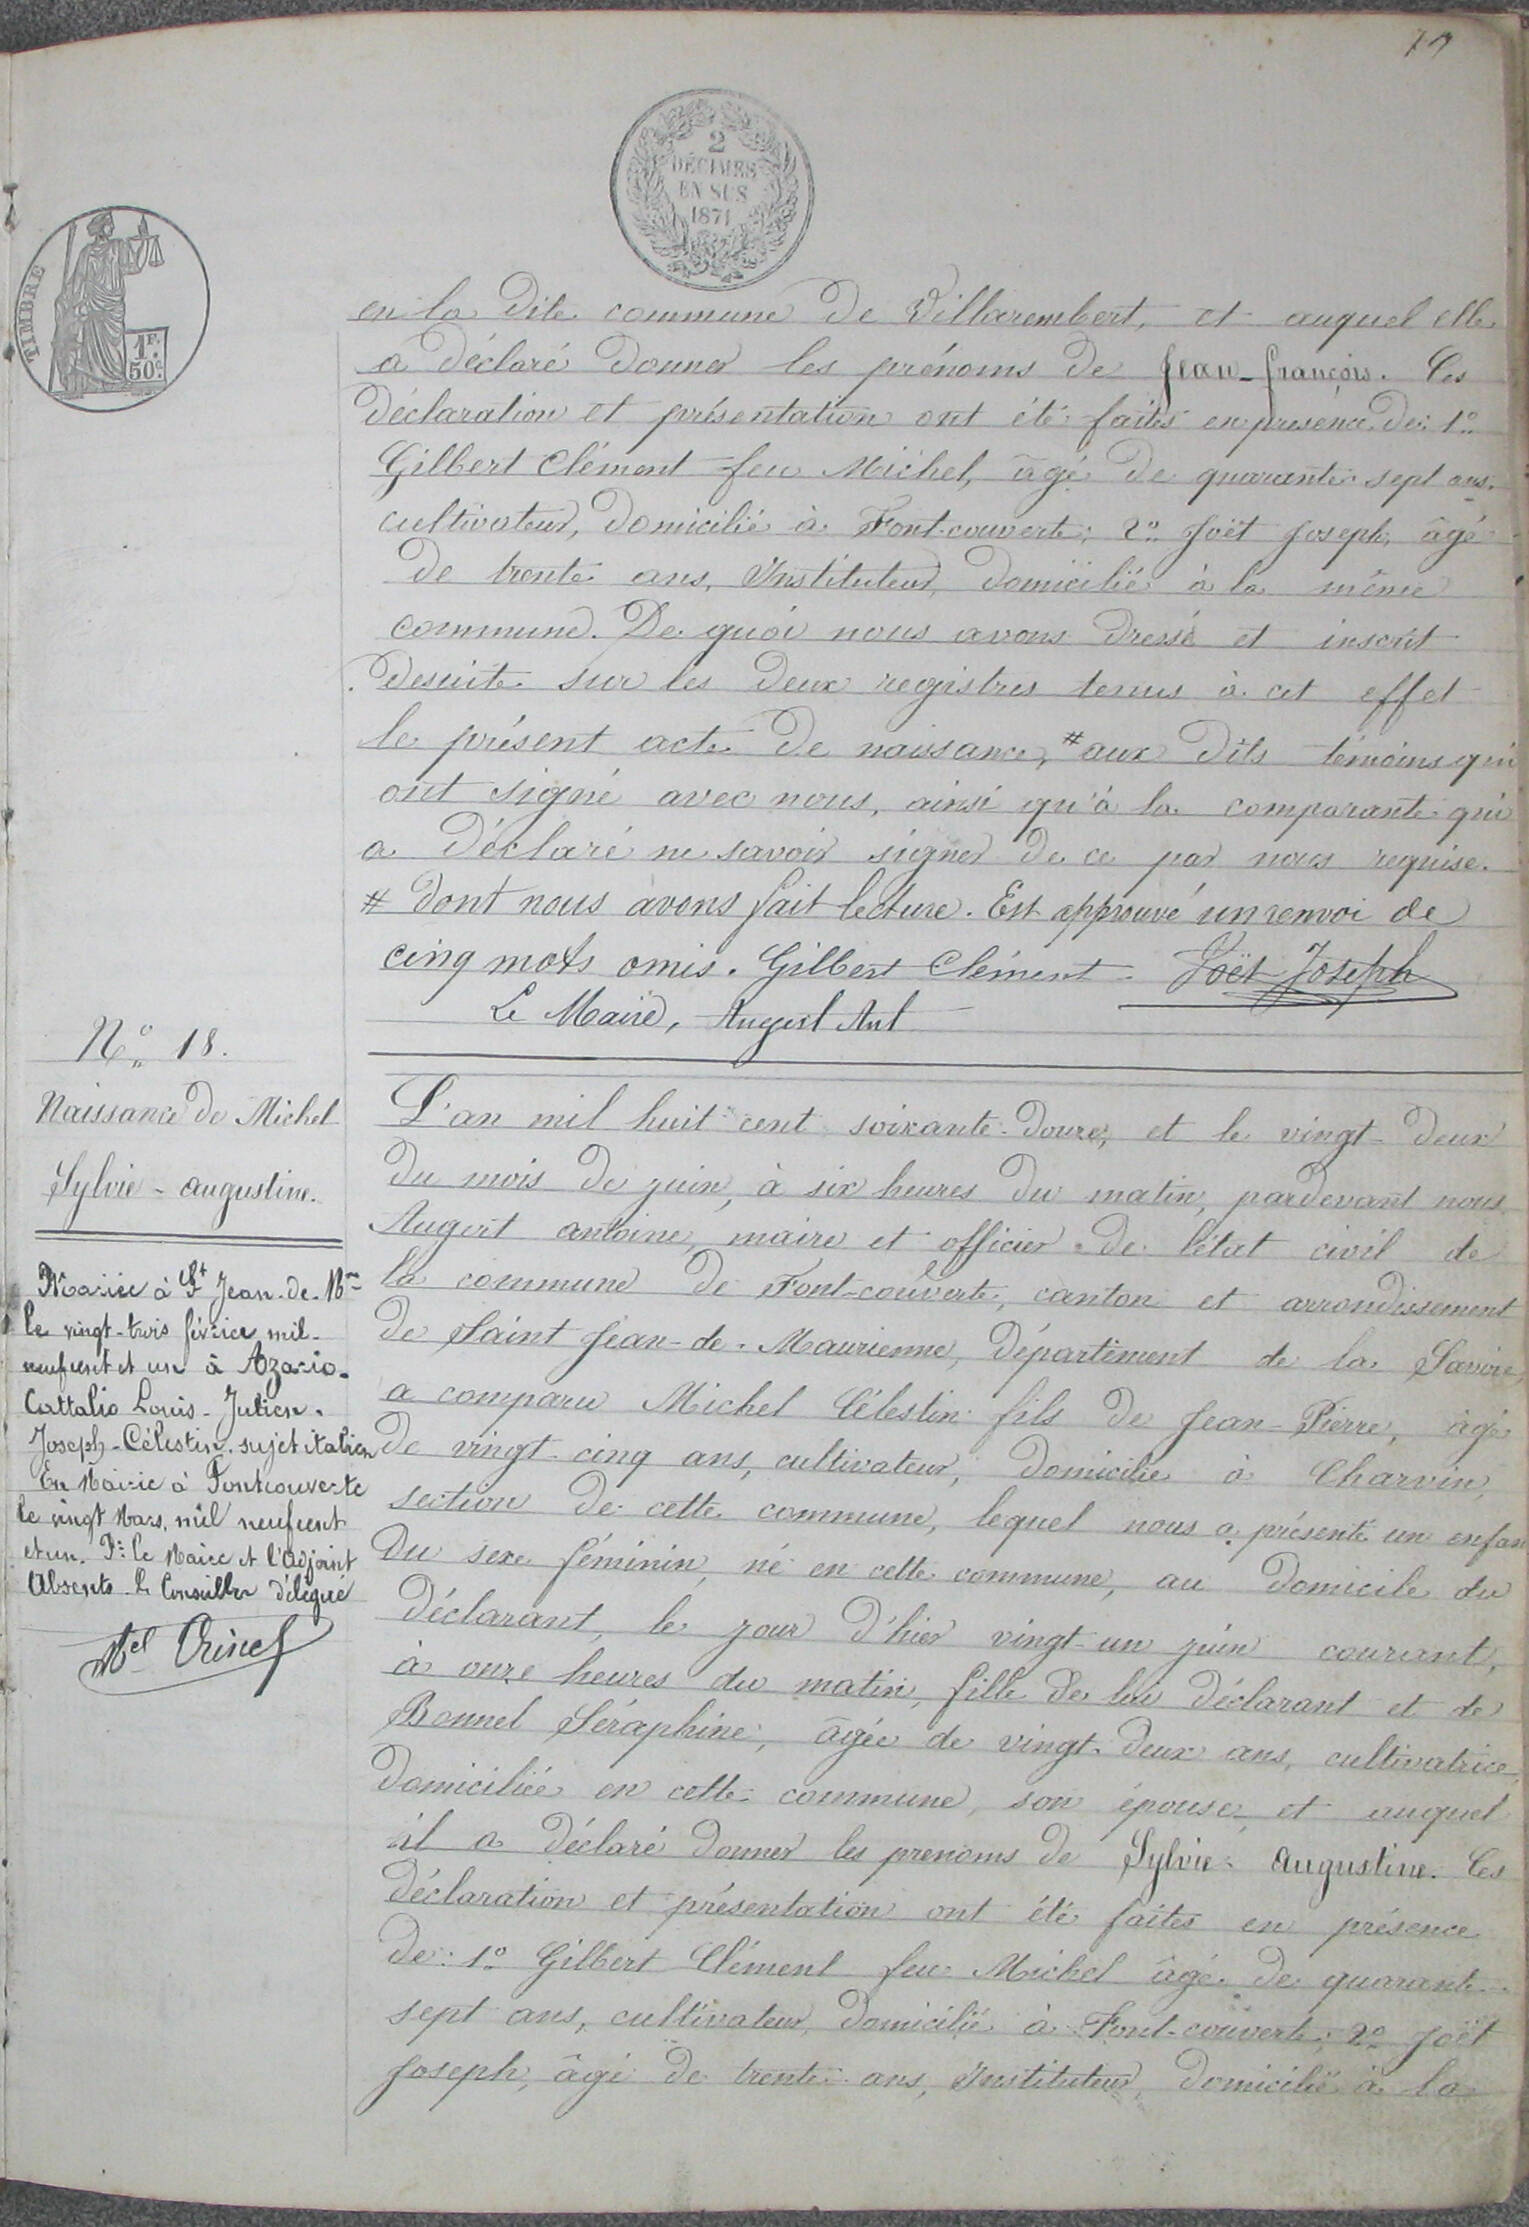 2
DÉCIMES
EN SUS
1871
TIMBRE
1F.
50c.
en la dite commune de Villarembert, et auquel elle
a déclaré donner les prénoms de Jean-François. Ces
déclaration et présentation ont été faites en presence de: 1o
Gilbert Clément feu Michel, âgé de quarante-sept ans,
cultivateur, domicilié à Font-couverte; 2o Joët Joseph, âgé
de trente ans, Instituteur, domicilié à la même
commune. De quoi nous avons dressé et inscrit
desuite sur les deux registres tenus à cet effet
le présent acte de naissance, # aux dits témoins qui
ont signé avec nous, ainsi qu'à la comparante qui
a déclaré ne savoir signer de ce par nous requise.
# dont nous avons fait lecture. Est approuvé un renvoi de
cinq mots omis. Gilbert Clément Joët Joseph
Le Maire, Augert Ant
No 18.
Naissance de Michel
Sylvie-augustine.
Mariée à St Jean-de-Mne
le vingt-trois février mil-
neufcent et un à Azario-
Cattalio Louis-Julien-
Joseph-Célestin, sujet italien
En Mairie à Fontcouverte
le vingt Mars, mil neufcent
et un. Pr le Maire et l'Adjoint
Absents le Conseiller délégué
Mel
L'an mil huit cent soixante-douze, et le vingt-deux
du mois de juin, à six heures du matin, pardevant nous
Augert antoine, maire et officier de l'état civil de
la commune de Font-couverte, canton et arrondissement
de Saint Jean-de-Maurienne, département de la Savoie,
a comparu Michel Célestin fils de Jean-Pierre, âgé
de vingt-cinq ans, cultivateur, domicilié à Charvin,
section de cette commune, lequel nous a présenté un enfan
du sexe féminin, né en cette commune, au domicile du
déclarant, le jour d'hier vingt-un juin courant,
à onze heures du matin, fille de lui déclarant et de
Bonnel Séraphine, âgée de vingt-deux ans, cultivatrice,
domiciliée en cette commune, son épouse, et auquel
il a déclaré donner les prenoms de Sylvie-augustine. Ces
déclaration et présentation ont été faites en présence
de: 1o Gilbert Clément feu Michel âgé de quarante-
sept ans, cultivateur, domicilié à Font-couverte; 2o Joët
Joseph, âgé de trente ans, Instituteur, domicilié à la